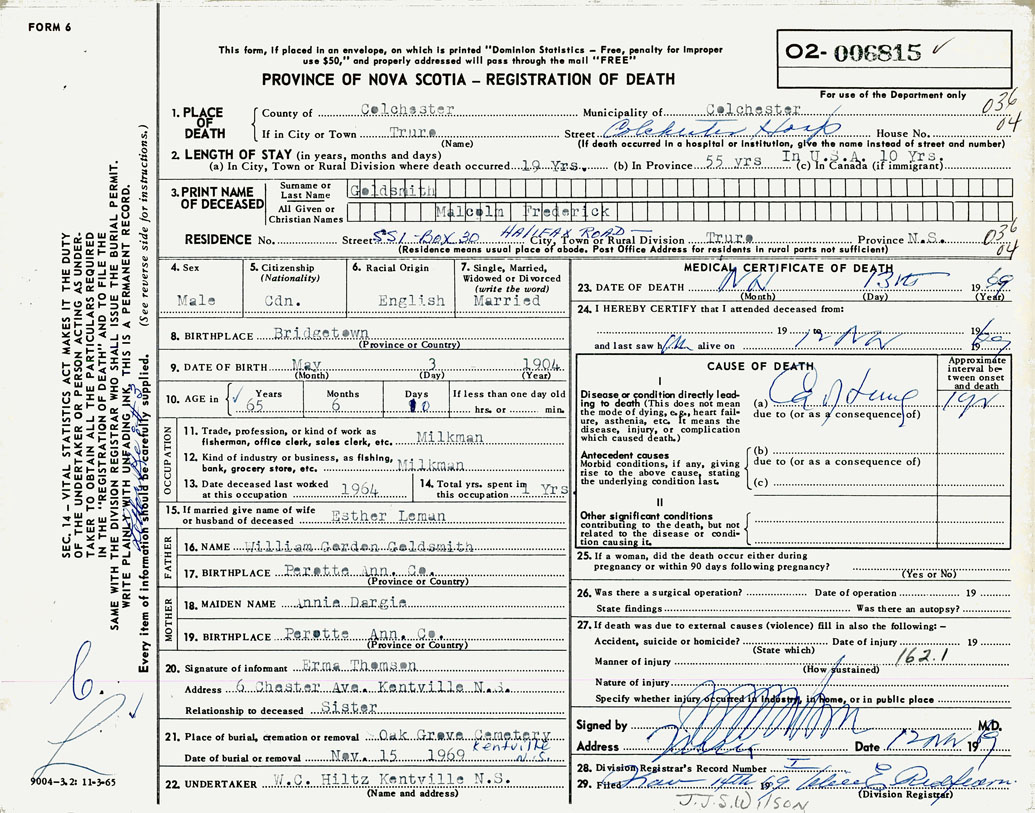 FORM 6
This form, if placed in an envelope, on which is printed "Dominion Statistics – Free, penalty for improper
use $50," and properly addressed will pass through the mail "FREE"
PROVINCE OF NOVA SCOTIA – REGISTRATION OF DEATH
O2- 006815 ✓
For use of the Department only
036
04
1. PLACE OF DEATH
County of Colchester Municipality of Colchester
If in City or Town Truro Street Colchester Hosp House No.
(Name) (If death occurred in a hospital or institution, give the name instead of street and number)
2. LENGTH OF STAY (in years, months and days)
(a) In City, Town or Rural Division where death occurred 19 Yrs. (b) In Province 55 yrs In U.S.A. 10 Yrs. (c) In Canada (if immigrant)
3. PRINT NAME OF DECEASED
Surname or Last Name Goldsmith
All Given or Christian Names Malcolm Frederick
RESIDENCE No. Street SS1-BOX 30 HALIFAX ROAD – City, Town or Rural Division Truro Province N.S.
(Residence means usual place of abode. Post Office Address for residents in rural parts not sufficient)
036
04
4. Sex Male
5. Citizenship (Nationality) Cdn.
6. Racial Origin English
7. Single, Married, Widowed or Divorced (write the word) Married
8. BIRTHPLACE Bridgetown
(Province or Country)
9. DATE OF BIRTH May 3 1904
(Month) (Day) (Year)
10. AGE in { ✓ Years 65 Months 6 Days 10 If less than one day old hrs. or min.
OCCUPATION
11. Trade, profession, or kind of work as
fisherman, office clerk, sales clerk, etc. Milkman
12. Kind of industry or business, as fishing,
bank, grocery store, etc. Milkman
13. Date deceased last worked
at this occupation 1964
14. Total yrs. spent in
this occupation 1 Yrs
15. If married give name of wife
or husband of deceased Esther Leman
FATHER
16. NAME William Gordon Goldsmith
17. BIRTHPLACE Perotte Ann. Co.
(Province or Country)
MOTHER
18. MAIDEN NAME Annie Dargie
19. BIRTHPLACE Perotte Ann. Co.
(Province or Country)
20. Signature of informant Erma Thomson
Address 6 Chester Ave. Kentville N.S.
Relationship to deceased Sister
21. Place of burial, cremation or removal Oak Grove Cemetery
Kentville N.S.
Date of burial or removal Nov. 15 1969
22. UNDERTAKER W.C. Hiltz Kentville N.S.
(Name and address)
MEDICAL CERTIFICATE OF DEATH
23. DATE OF DEATH Nov 13th 1969
(Month) (Day) (Year)
24. I HEREBY CERTIFY that I attended deceased from:
19 to 12 Nov 19
and last saw him alive on 19
CAUSE OF DEATH
Approximate interval between onset and death
I
Disease or condition directly lead-
ing to death (This does not mean
the mode of dying, e.g., heart fail-
ure, asthenia, etc. It means the
disease, injury, or complication
which caused death.)
(a) Ca of lung 1 yr
due to (or as a consequence of)
Antecedent causes
Morbid conditions, if any, giving
rise to the above cause, stating
the underlying condition last.
(b)
due to (or as a consequence of)
(c)
II
Other significant conditions
contributing to the death, but not
related to the disease or condi-
tion causing it.
25. If a woman, did the death occur either during
pregnancy or within 90 days following pregnancy?
(Yes or No)
26. Was there a surgical operation? Date of operation 19
State findings Was there an autopsy?
27. If death was due to external causes (violence) fill in also the following: –
Accident, suicide or homicide? Date of injury 19
(State which)
Manner of injury 162.1
(How sustained)
Nature of injury
Specify whether injury occurred in industry, in home, or in public place
Signed by M.D.
Address Truro Date 12 Nov 19
28. Division Registrar's Record Number
29. Filed Nov 14th 69 19
(Division Registrar)
J.J.S. WILSON
SEC. 14 – VITAL STATISTICS ACT MAKES IT THE DUTY
OF THE UNDERTAKER OR PERSON ACTING AS UNDER-
TAKER TO OBTAIN ALL THE PARTICULARS REQUIRED
IN THE "REGISTRATION OF DEATH" AND TO FILE THE
SAME WITH THE DIVISION REGISTRAR WHO SHALL ISSUE THE BURIAL PERMIT.
WRITE PLAINLY WITH UNFADING INK, THIS IS A PERMANENT RECORD.
Every item of information should be carefully supplied. (See reverse side for instructions.)
9004-3.2: 11-3-65